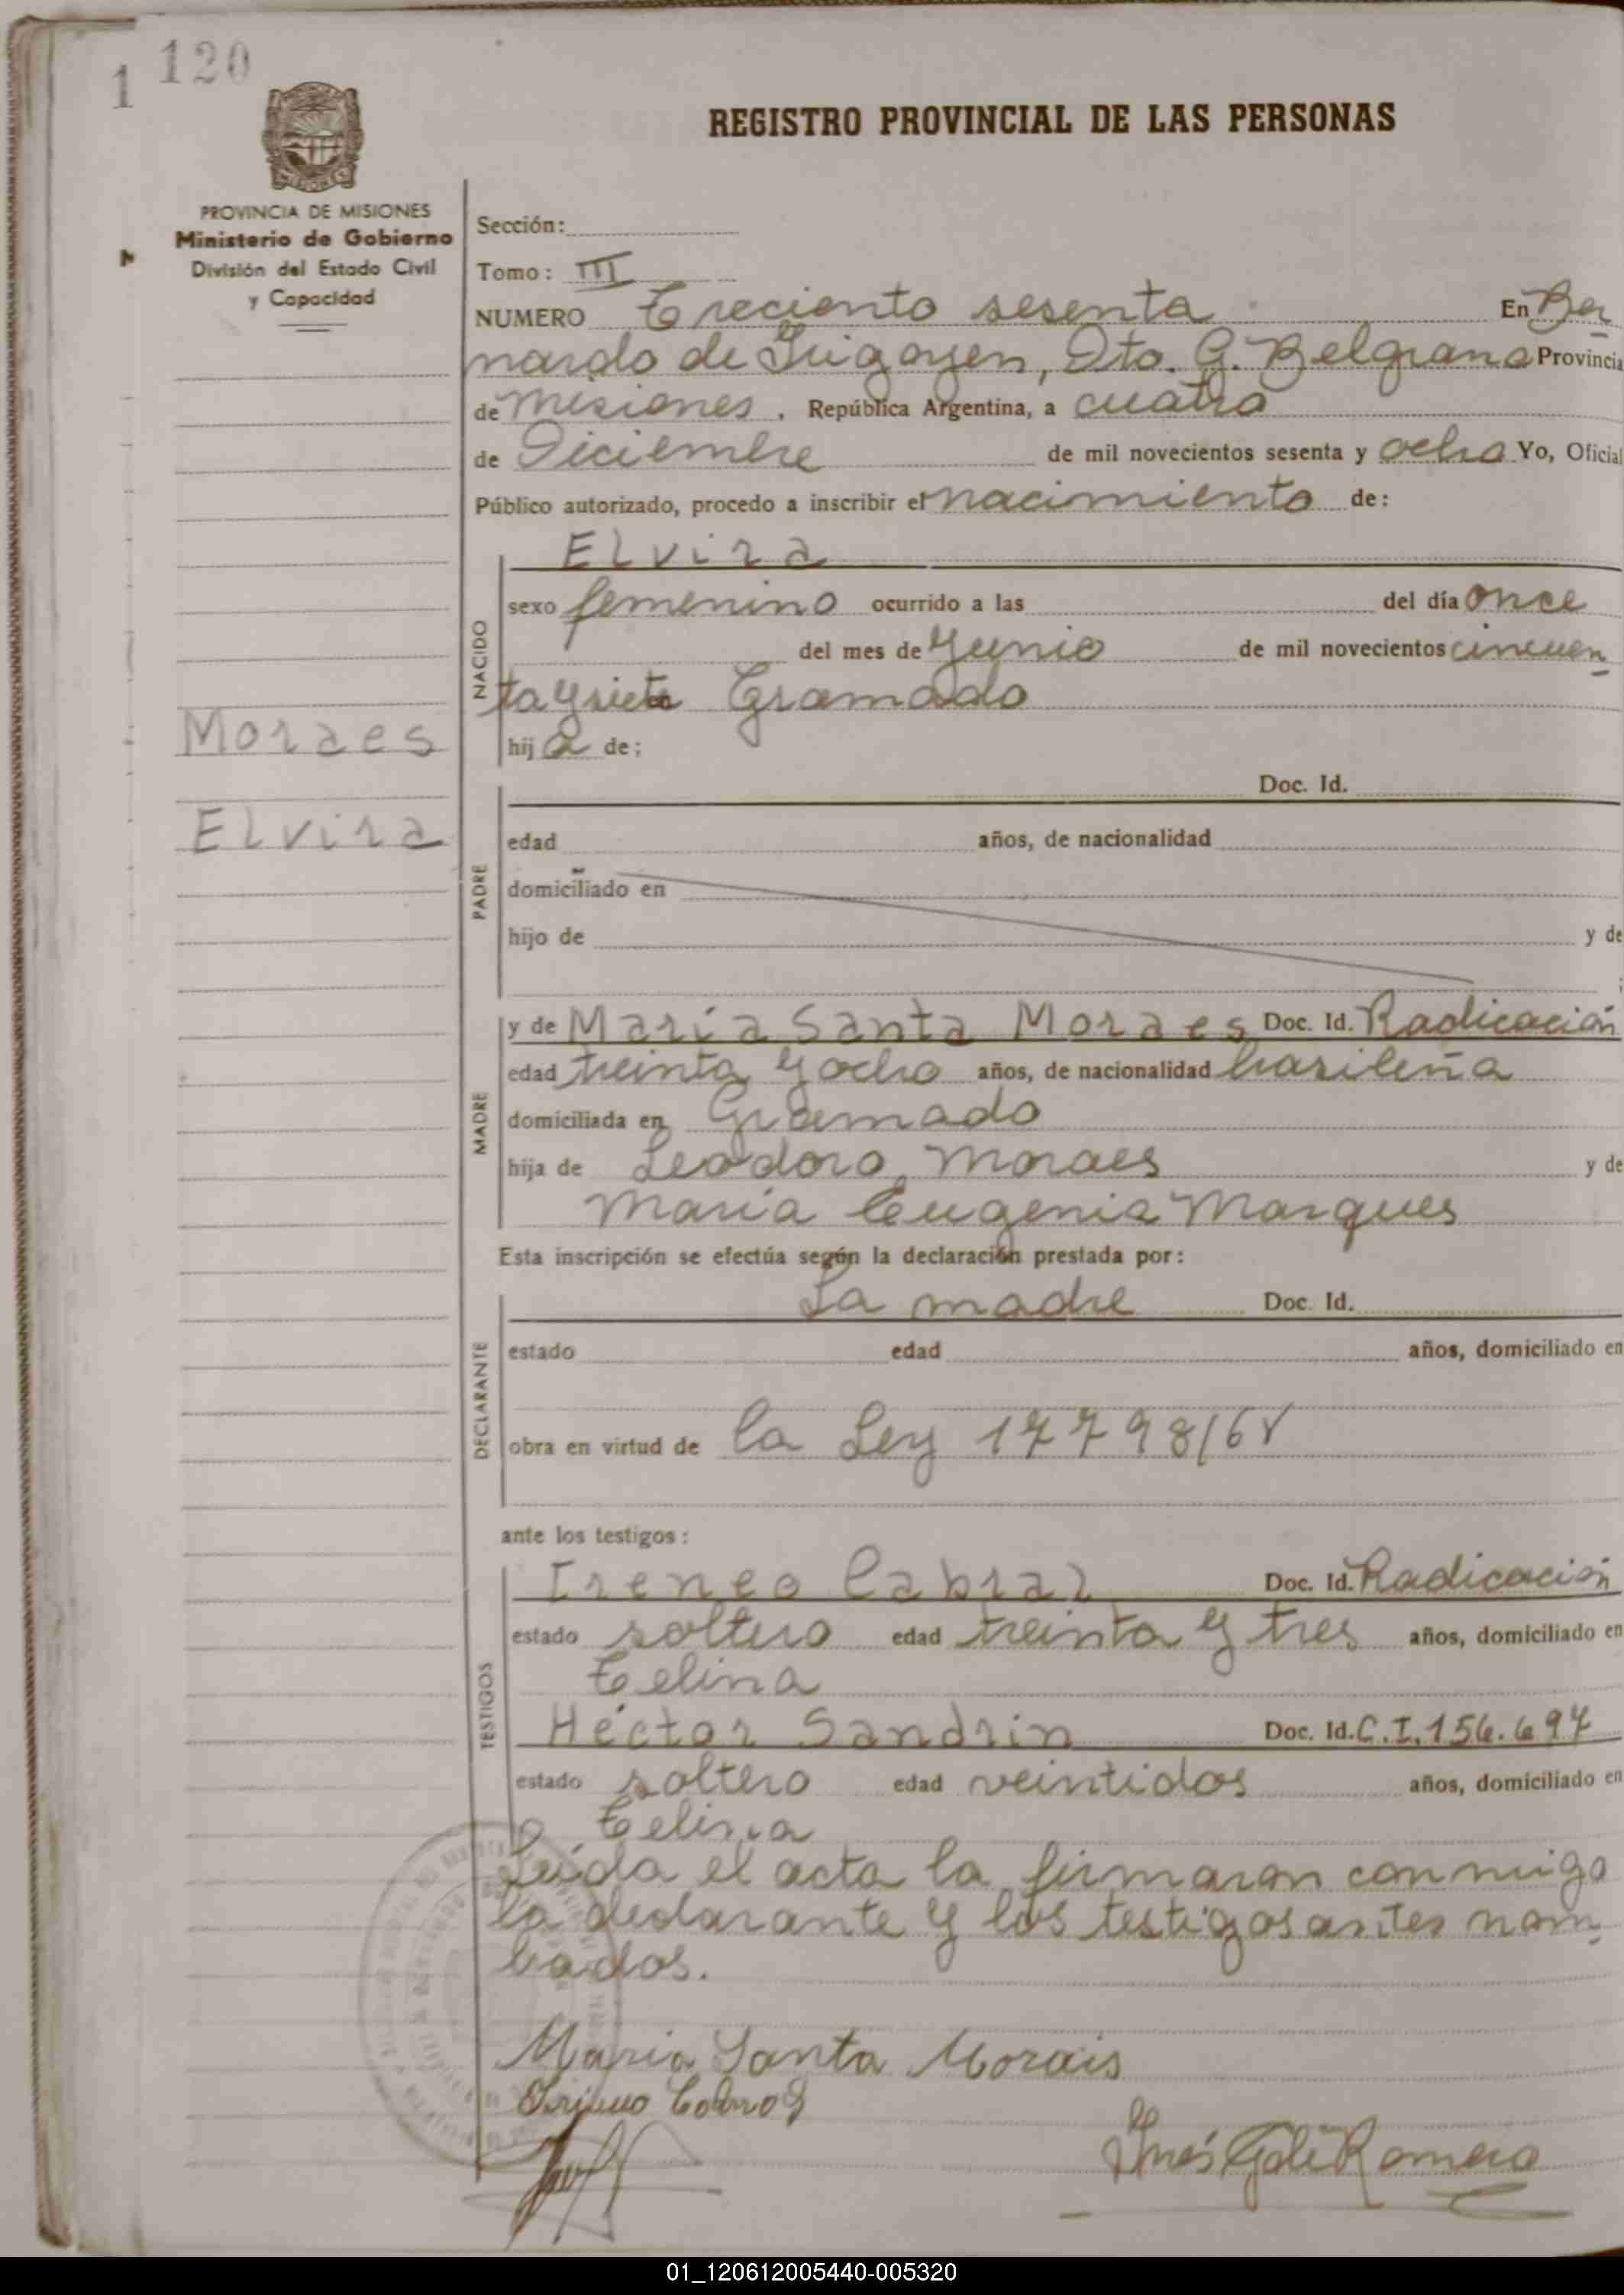 1 120
REGISTRO PROVINCIAL DE LAS PERSONAS
PROVINCIA DE MISIONES
Ministerio de Gobierno
División del Estado Civil
y Capacidad
Sección:
Tomo: III
NUMERO Treciento sesenta En Ber
nardo de Irigoyen, Dto. G. Belgrano Provincia
de Misiones, República Argentina, a cuatro
de Diciembre de mil novecientos sesenta y ocho Yo, Oficial
Público autorizado, procedo a inscribir el nacimiento de:
Elvira
NACIDO
sexo femenino ocurrido a las del día once
del mes de Junio de mil novecientos cincuen
ta y siete Gramado
hija de;
Moraes
Elvira
PADRE
Doc. Id.
edad años, de nacionalidad
domiciliado en
hijo de y de
MADRE
y de María Santa Moraes Doc. Id. Radicación
edad treinta y ocho años, de nacionalidad brasileña
domiciliada en Gramado
hija de Leodoro Moraes y de
María Eugenia Marques
Esta inscripción se efectúa según la declaración prestada por:
DECLARANTE
La madre Doc. Id.
estado edad años, domiciliado en
obra en virtud de la Ley 17798/68
ante los testigos:
TESTIGOS
Ireneo Cabral Doc. Id. Radicación
estado soltero edad treinta y tres años, domiciliado en
Celina
Héctor Sandrin Doc. Id. C.I. 156.697
estado soltero edad veintidos años, domiciliado en
Celina
Leída el acta la firmaron conmigo
la declarante y los testigos antes nom
bados.
Maria Santa Morais
Inés Romero
01_120612005440-005320